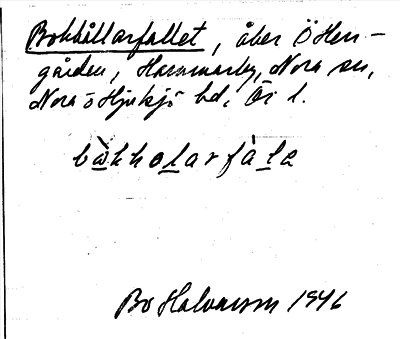 Bokhållarfallet, åker Ö Herr-
gården, Hammarby, Nora sn,
Nora o Hjulsjö bd, Ör l.
bàkholarfàle
Bo Halvarson 1946